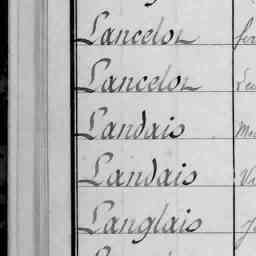 Lancelot
Lancelot
Landais
Landais
Langlais